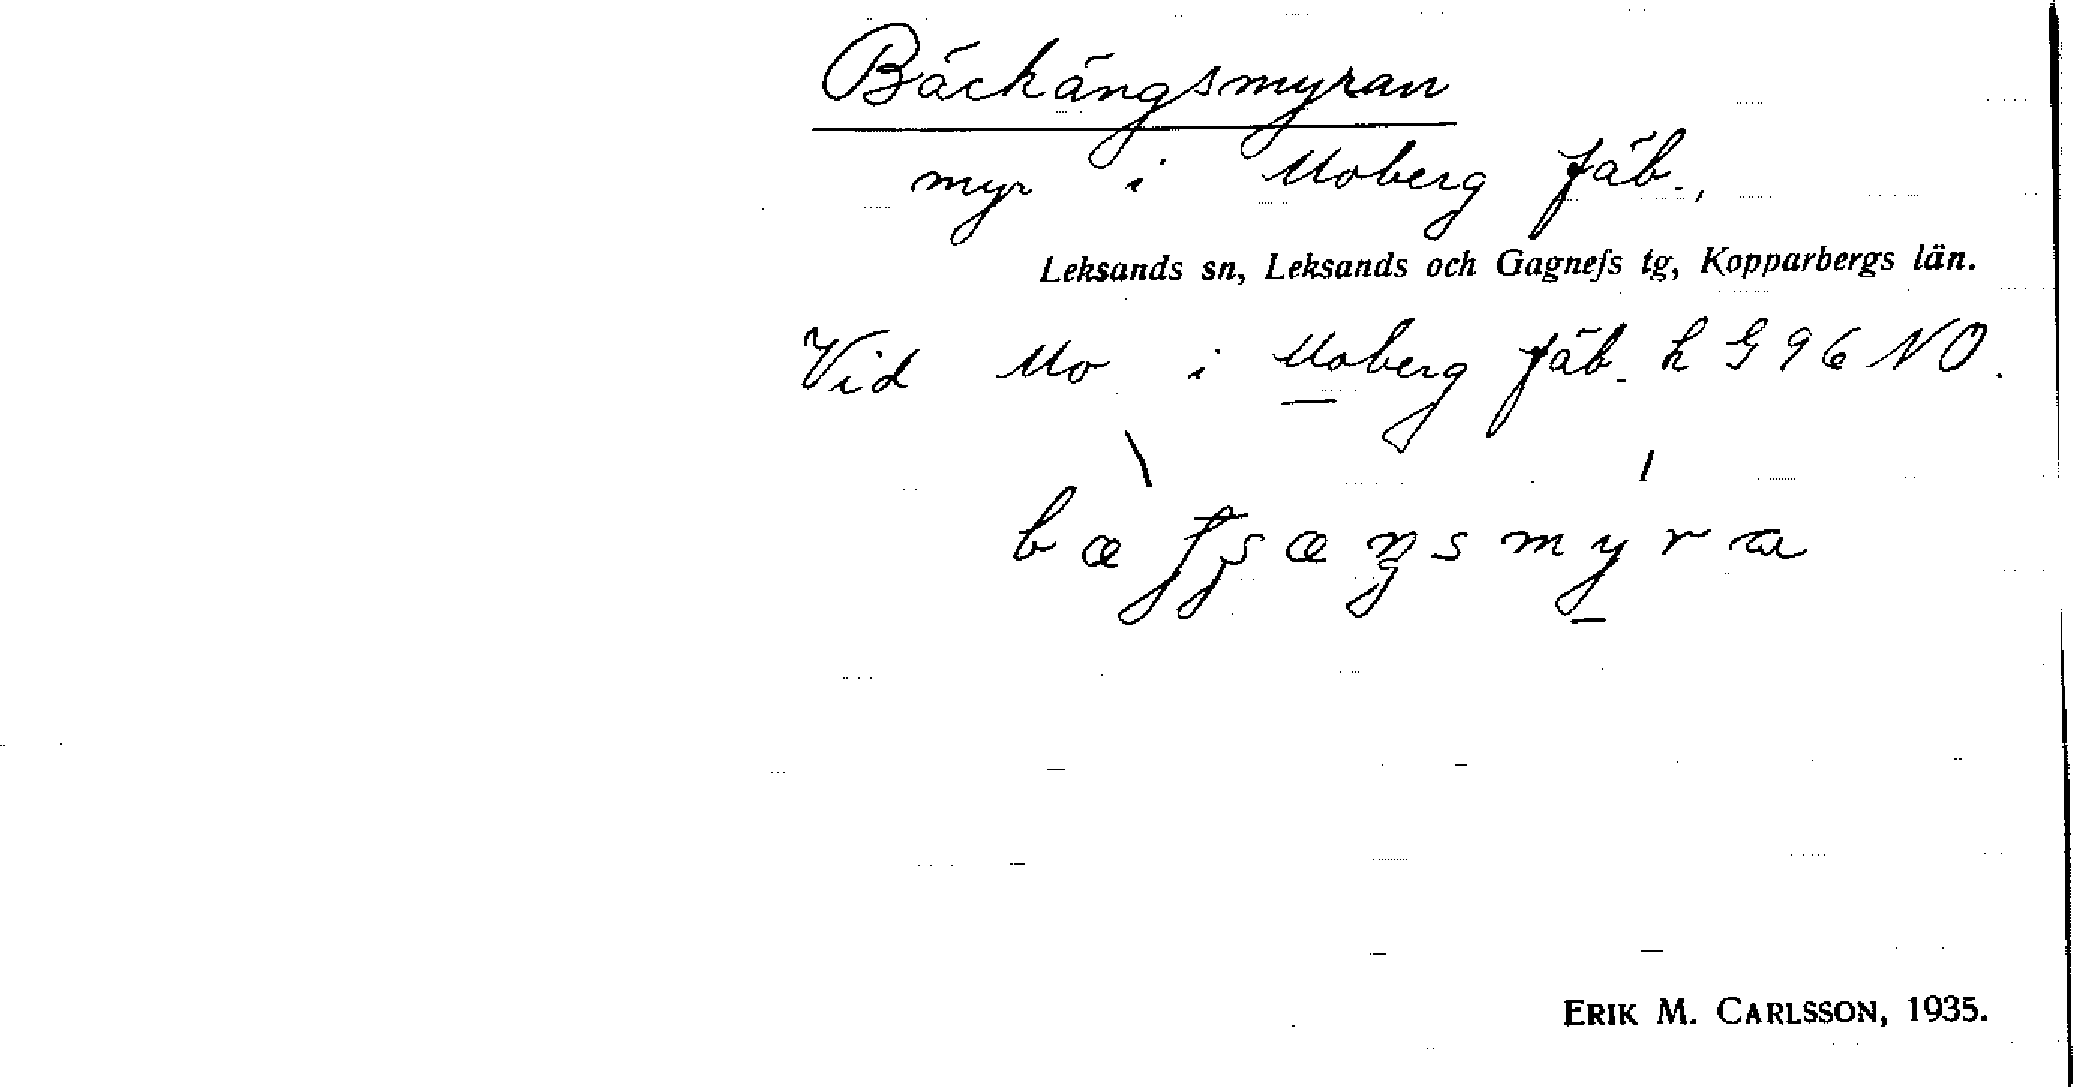 Bäckängsmyran
myr i Moberg fäb.,
Leksands sn, Leksands och Gagnefs tg, Kopparbergs län.
Vid Mo i Moberg fäb. h G 96 NO.
ERIK M. CARLSSON, 1935.